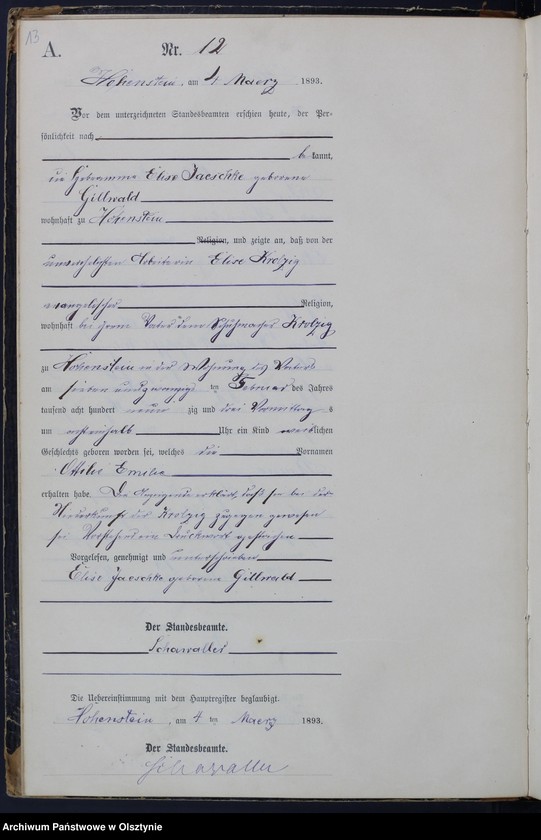 13
A.
Nr. 12
Hohenstein, am 4 Maerz 1893.
Vor dem unterzeichneten Standesbeamten erschien heute, der Per-
sönlichkeit nach
be kannt,
die Hebamme Elise Jaeschke geborene
Gillwald
wohnhaft zu Hohenstein
Religion, und zeigte an, daß von der
unverehelichten Arbeiterin Elise Krolzig
evangelischer Religion,
wohnhaft bei ihrem Vater dem Schuhmacher Krolzig
zu Hohenstein in der Wohnung des Vaters
am sieben und zwanzigsten Februar des Jahres
tausend acht hundert neun zig und drei Vormittags
um Uhr ein Kind weiblichen
Geschlechts geboren worden sei, welches die Vornamen
Ottilie Emilie
erhalten habe. Die Anzeigende erklärt, daß sie bei der
Niederkunft der Krolzig zugegen gewesen
sei Vorstehend ein Druckwort gestrichen
Vorgelesen, genehmigt und unterschrieben
Elise Jaeschke geborene Gillwald
Der Standesbeamte.
Schawaller
Die Uebereinstimmung mit dem Hauptregister beglaubigt.
Hohenstein, am 4 ten Maerz 1893.
Der Standesbeamte.
Schawaller
Archiwum Państwowe w Olsztynie